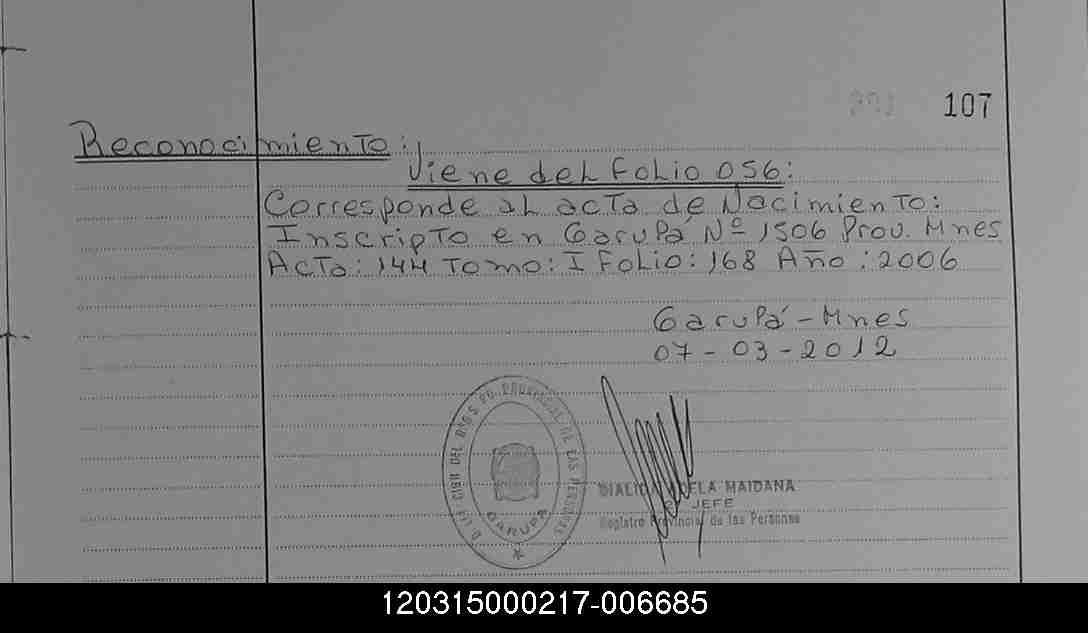 107
Reconocimiento:
Viene del Folio 056:
Corresponde al acta de Nacimiento:
Inscripto en Garupá Nº 1506 Prov. Mnes
Acta: 144 Tomo: I Folio: 168 Año: 2006
Garupá - Mnes
07-03-2012
PROVINCIAL DE LAS PERSONAS
GARUPA
ADELA MAIDANA
JEFE
Registro Provincial de las Personas
120315000217-006685